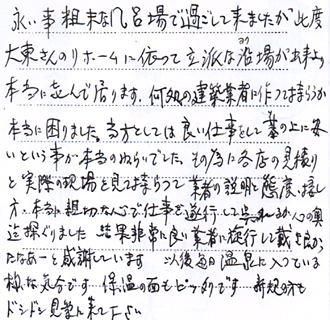 永い事粗末な風呂場で過ごして来ましたが此度
大東さんのリホームに依って立派な浴場が出来
本当に喜んで居ります。何処の建築業者に作って
本当に困りました。当方としては良い仕事をして
いという事が本当のねらいでした。その為に各店の見積り
と実際の現場を見て 業者の説明と態度、接し
方、本当に親切な心で仕事を遂行して
結果非常に良い業者に施行して戴き良かっ
たなあーと感謝しています 以後毎日温泉に入っている
様な気分です 保温の面もビックリです
ドンドン見学に来て下さい